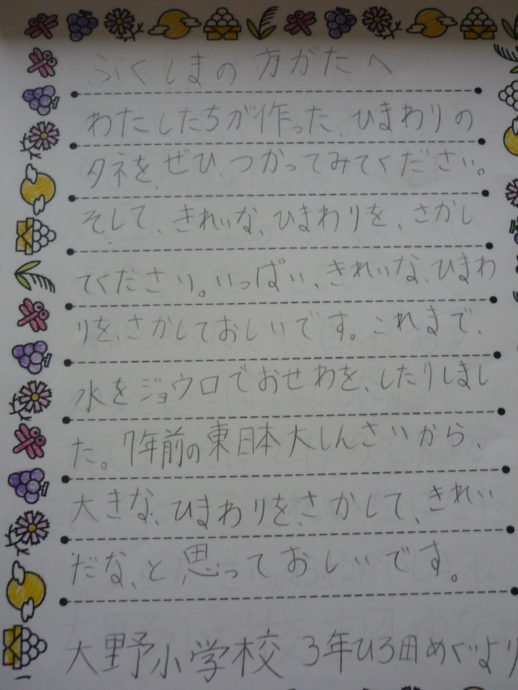 ふくしまの方がたへ
わたしたちが作った、ひまわりの
タネを、ぜひ、つかってみてください。
そして、きれいな、ひまわりを、さかし
てください。いっぱい、きれいな、ひまわ
りを、さかしておしいです。これまで、
水をジョウロでおせわを、したりしまし
た。7年前の東日本大しんさいから、
大きな、ひまわりを、さかして、きれい
だな、と思っておしいです。
大野小学校 3年ひろ田めぐより